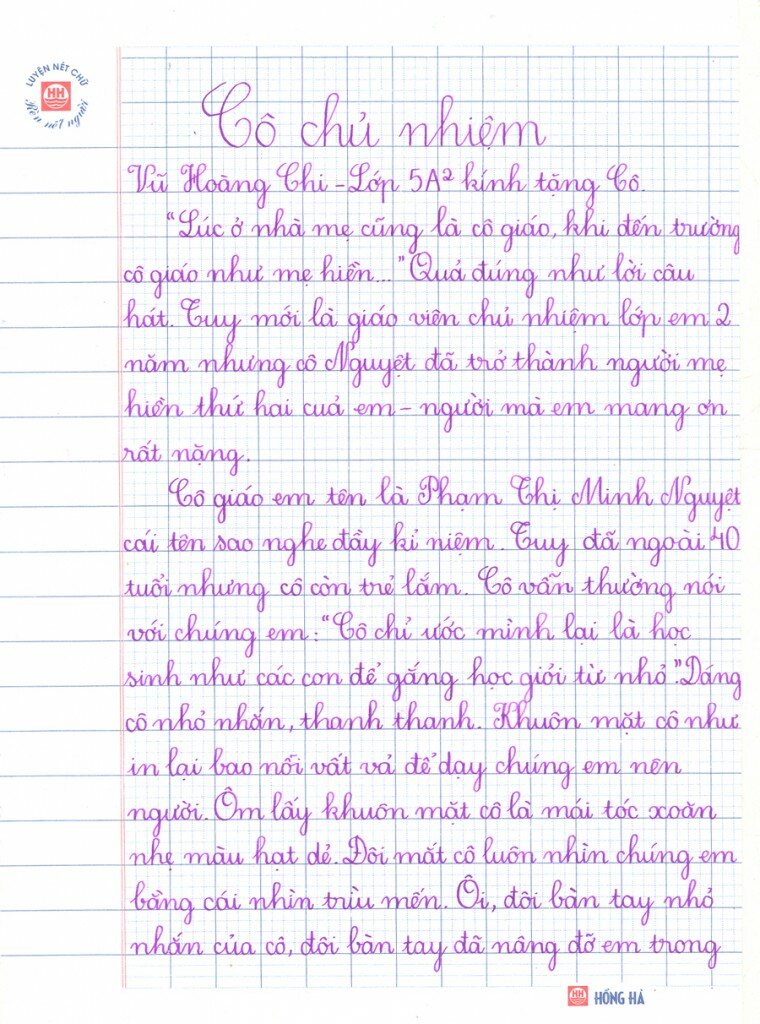 LUYỆN NÉT CHỮ
HH
Rèn nết người
Cô chủ nhiệm
Vũ Hoàng Chi - Lớp 5A² kính tặng Cô.
"Lúc ở nhà mẹ cũng là cô giáo, khi đến trường
cô giáo như mẹ hiền..." Quả đúng như lời câu
hát. Tuy mới là giáo viên chủ nhiệm lớp em 2
năm nhưng cô Nguyệt đã trở thành người mẹ
hiền thứ hai cuả em - người mà em mang ơn
rất nặng.
Cô giáo em tên là Phạm Thị Minh Nguyệt
cái tên sao nghe đầy kỉ niệm. Tuy đã ngoài 40
tuổi nhưng cô còn trẻ lắm. Cô vẫn thường nói
với chúng em: "Cô chỉ ước mình lại là học
sinh như các con để gắng học giỏi từ nhỏ". Dáng
cô nhỏ nhắn, thanh thanh. Khuôn mặt cô như
in lại bao nỗi vất vả để dạy chúng em nên
người. Ôm lấy khuôn mặt cô là mái tóc xoăn
nhẹ màu hạt dẻ. Đôi mắt cô luôn nhìn chúng em
bằng cái nhìn trìu mến. Ôi, đôi bàn tay nhỏ
nhắn của cô, đôi bàn tay đã nâng đỡ em trong
HH HỒNG HÀ